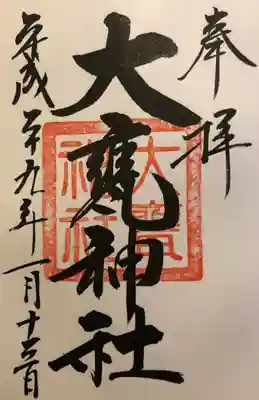 奉拝
大甕神社
大甕
神社
平成二十九年一月十三日